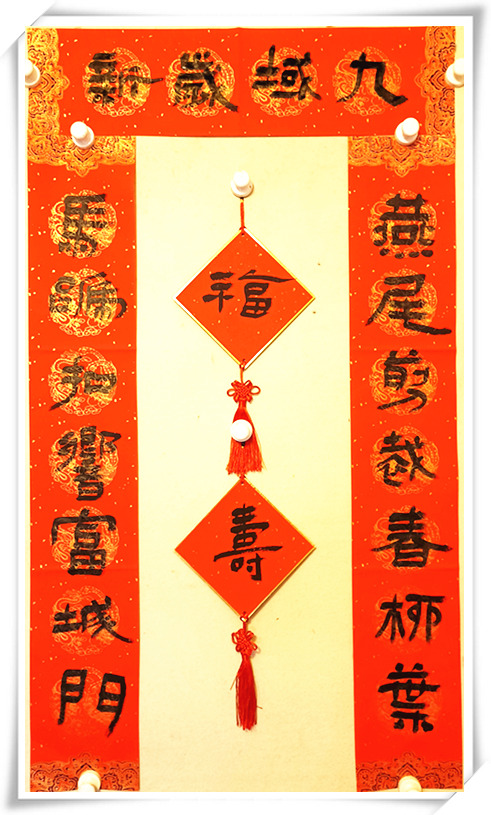 九域歲新
燕尾剪裁春柳葉
馬蹄扣響富城門
福
壽